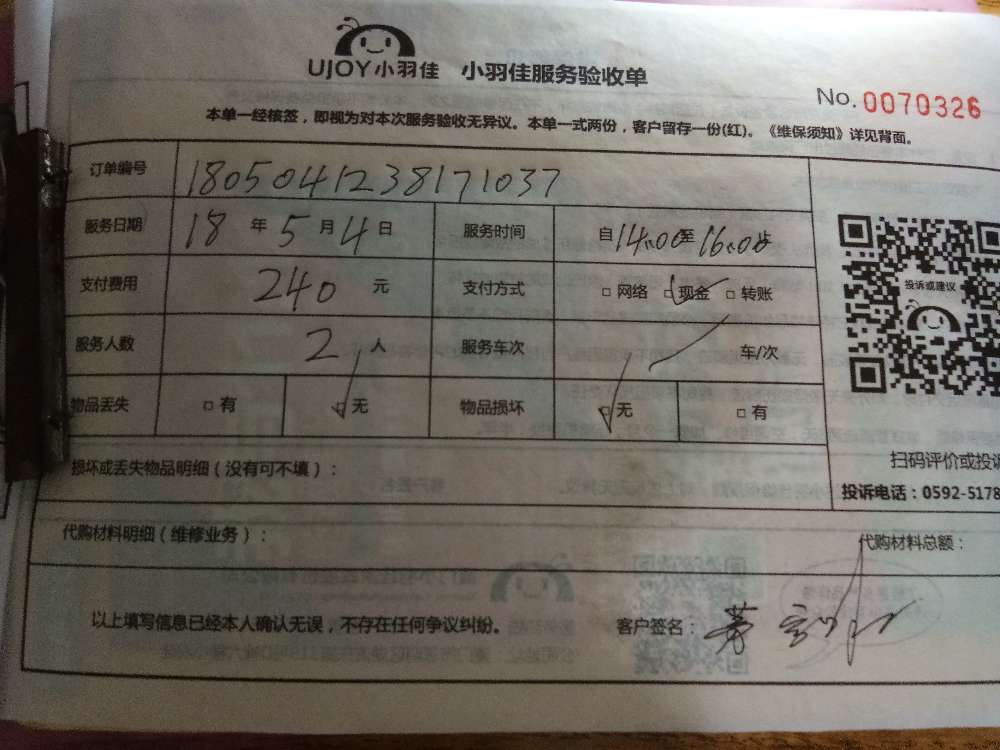 UJOY小羽佳 小羽佳服务验收单
No. 0070326
本单一经核签，即视为对本次服务验收无异议。本单一式两份，客户留存一份(红)。《维保须知》详见背面。
订单编号 1805041238171037
服务日期 18 年 5 月 4 日 服务时间 自 14:00 至 16:00 止
支付费用 240 元 支付方式 □ 网络 □ 现金 □ 转账
投诉或建议
服务人数 2 人 服务车次 车/次
物品丢失 □ 有 □ 无 物品损坏 □ 无 □ 有
损坏或丢失物品明细（没有可不填）：
扫码评价或投诉
投诉电话：0592-5178
代购材料明细（维修业务）：
代购材料总额：
以上填写信息已经本人确认无误，不存在任何争议纠纷。 客户签名：